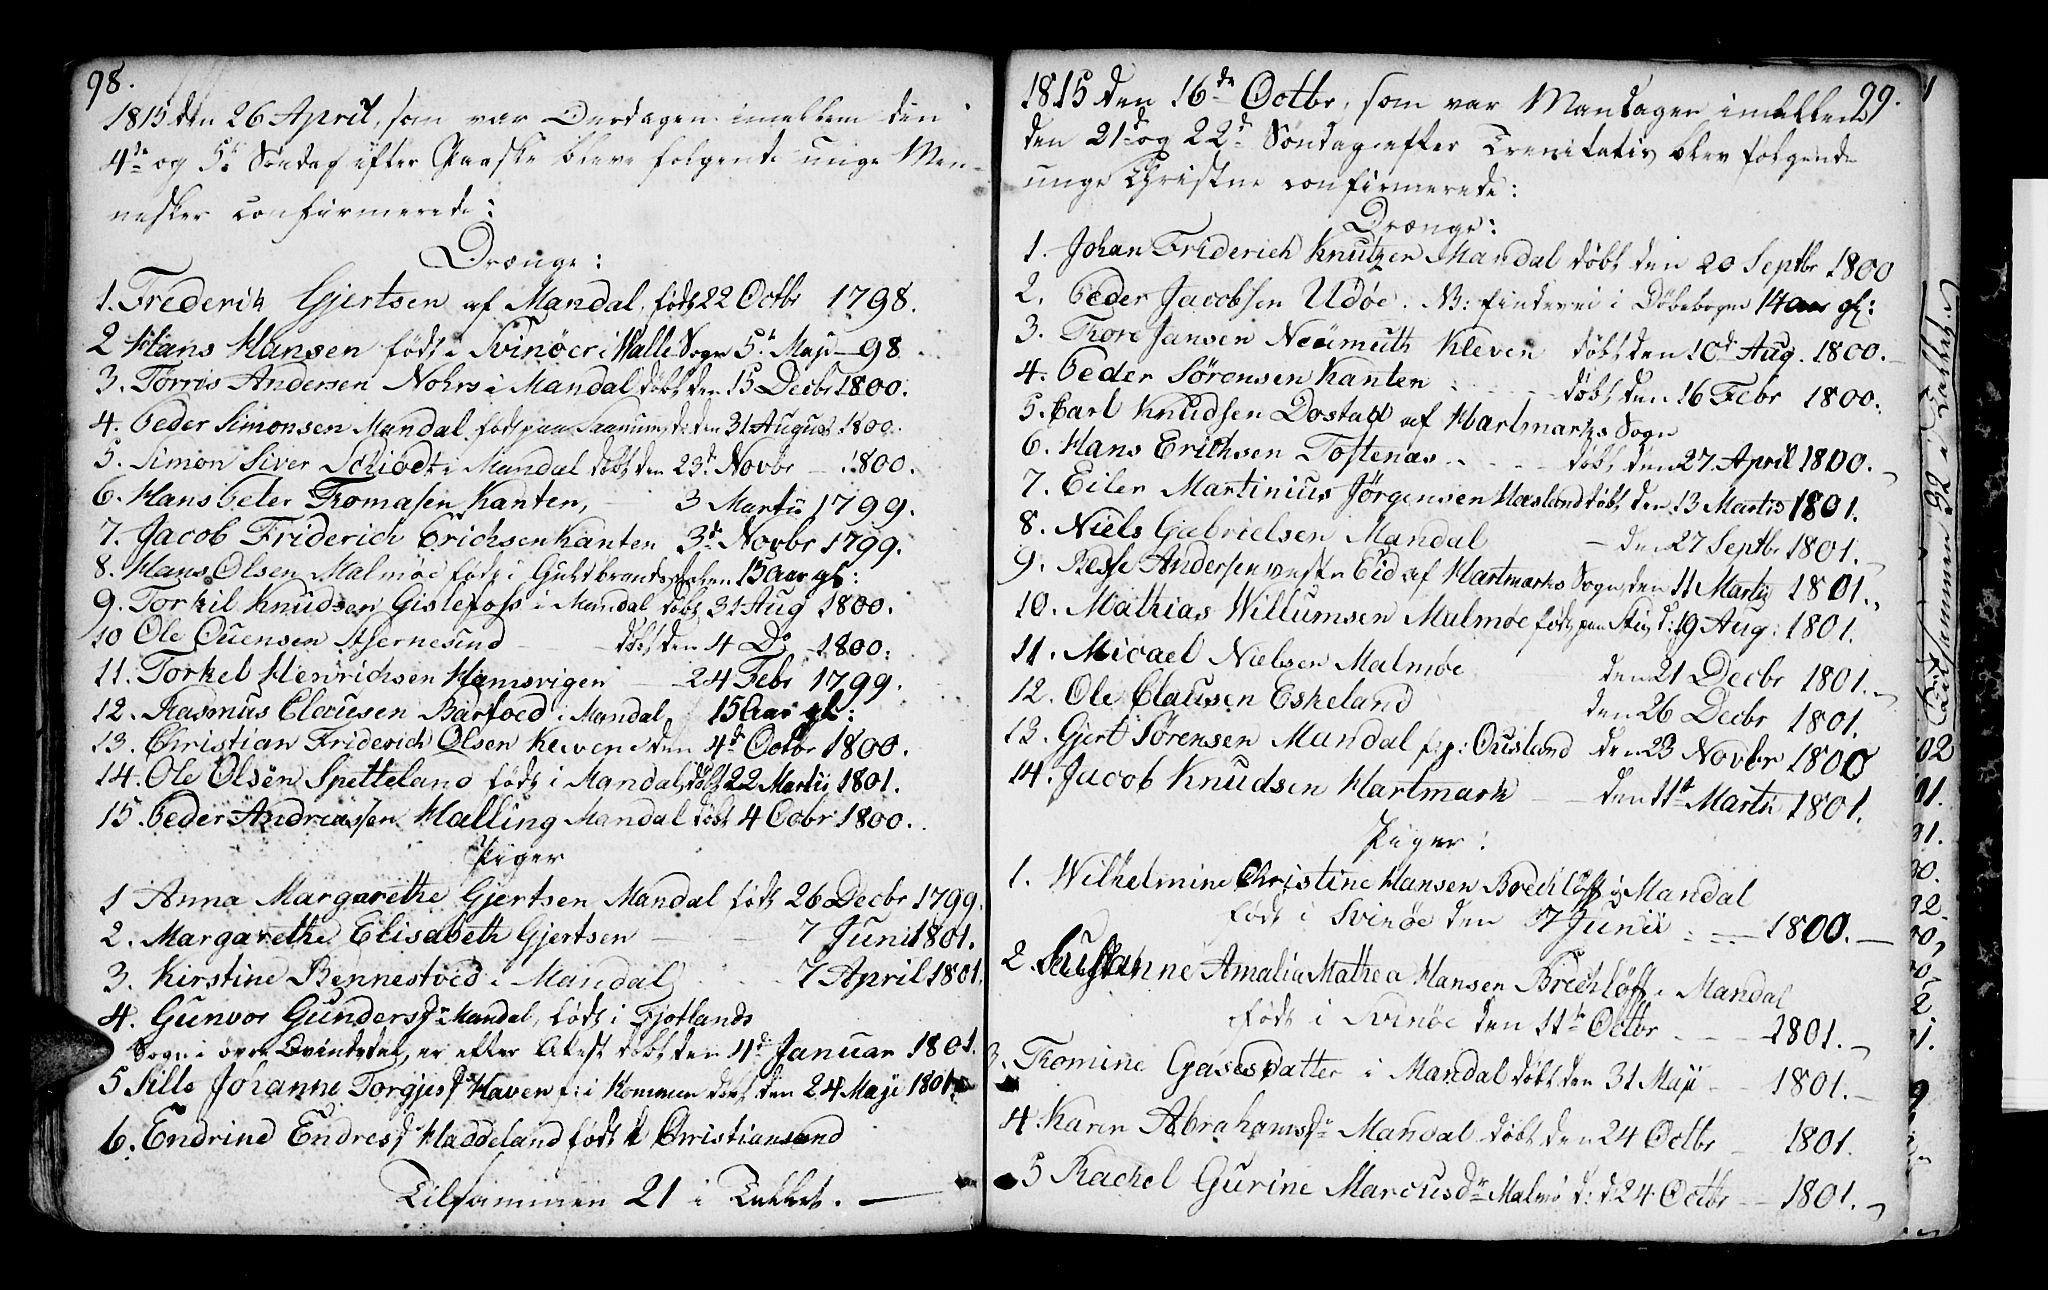 98.
1815 den 26 April, som var Onsdagen imellem den
4de og 5te Søndag efter Paaske bleve følgende unge Men-
nesker confirmerede:
Drænge:
1. Frederik Gjertsen af Mandal, født 22 Octbr 1798.
2 Hans Hansen født i Svinöer i Halle Sogn 5te Maji - 98
3. Torris Andersen Nohrs i Mandal döbt den 15 Decbr 1800.
4. Peder Simonsen Mandal født paa Saanum, d: den 31 August 1800.
5. Simon Siver Schiödt i Mandal döbt den 23d Novbr - 1800.
6. Hans Peter Thomasen Kanten, 3 Martii 1799.
7. Jacob Friderich Erichsen Kanten 3d Novbr 1799.
8. Hans Olsen Malmöe født i Guldbrandsdalen 15 Aar gl:
9. Torkil Knudsen Gislefoss i Mandal döbt 31 Aug 1800.
10 Ole Ouensen Hjernesund döbt den 4 Do 1800:
11. Torkel Henrichsen Hamsvigen - 24 Febr 1799.
12. Rasmus Clausen Barfoed i Mandal 15 Aar gl:
13. Christian Friderich Olsen Kleven den 4de Octbr 1800.
14. Ole Olsen Spetteland født i Mandal, döbt 22 Martii 1801.
15. Peder Andreassen Halling Mandal döbt 4 Oobr 1800.
Piger
1 Anna Margarethe Gjertsen Mandal født 26 Decbr 1799.
2. Margarethe Elisabeth Gjertsen - - 7 Juni 1801.
3. Kirstine Bennestved i Mandal - - 7 April 1801.
4. Gunvor Gundersdr Mandal, født i Fjotlands
Sogn i övre Qvindsdal, er efter Attest döbt den 4de Januar 1801.
5 Sille Johanne Torgjusdr Haven f: i Kommen döbt den 24 Maji 1801.
6. Endrine Endresdr Haddeland født i Christiansand
Tilsammen 21 i Tallet. —
99.
1815 den 16de Octbr, som var Mandagen imellem
den 21de og 22de Söndag efter Trenitatis blev følgende
unge Christne confirmerede:
Drænge:
1. Johan Friderich Knutzen Mandal döbt den 20 Septbr 1800
2. Peder Jacobsen Udöe. NB: findes ei i Döbebogen 14 Aar gl:
3. Thore Jansen Neumuth Kleven döbt den 10d Aug. 1800.
4. Peder Sörensen Kanten döbt den 16 Febr 1800:
5. Carl Knudsen Dostad af Hartmarks Sogn
6. Hans Erichsen Toftenæs . . . - döbt den 27 April 1800.
7. Eiler Martinius Jörgensen Haslandt döbt den 13 Martii 1801.
8. Niels Gabrielsen Mandal - den 27 Septbr 1801.
9. Resse Andersen vestre Eid af Hartmarks Sogn, den 11 Martii 1801.
10. Mathias Willumsen Malmöe født paa d: 19 Aug: 1801.
11. Micael Nielsen Malmöe den 21 Decbr 1801.
12. Ole Clausen Eskeland den 26 Decbr 1801.
13. Gjert Sörensen Mandal f: p: Ousland den 23 Novbr 1800
14. Jacob Knudsen Hartmark - - den 11te Martii 1801.
Piger:
1. Wilhelmine Christine Hansen Brechlöff i Mandal
født i Svinöe den 17 Junii : - - 1800. —
2. Susanne Amalia Mathea Hansen Brechlöff i Mandal
født i Svinöe den 11te Octbr - - - 1801.
3. Thomine Gasesdatter i Mandal döbt den 31 Maji - - 1801.
4. Karen Abrahamsdr Mandal döbt den 24 Octbr - 1801.
5 Rachel Gurine Marcusdr Malmö d: d: 24 Octbr - - 1801.